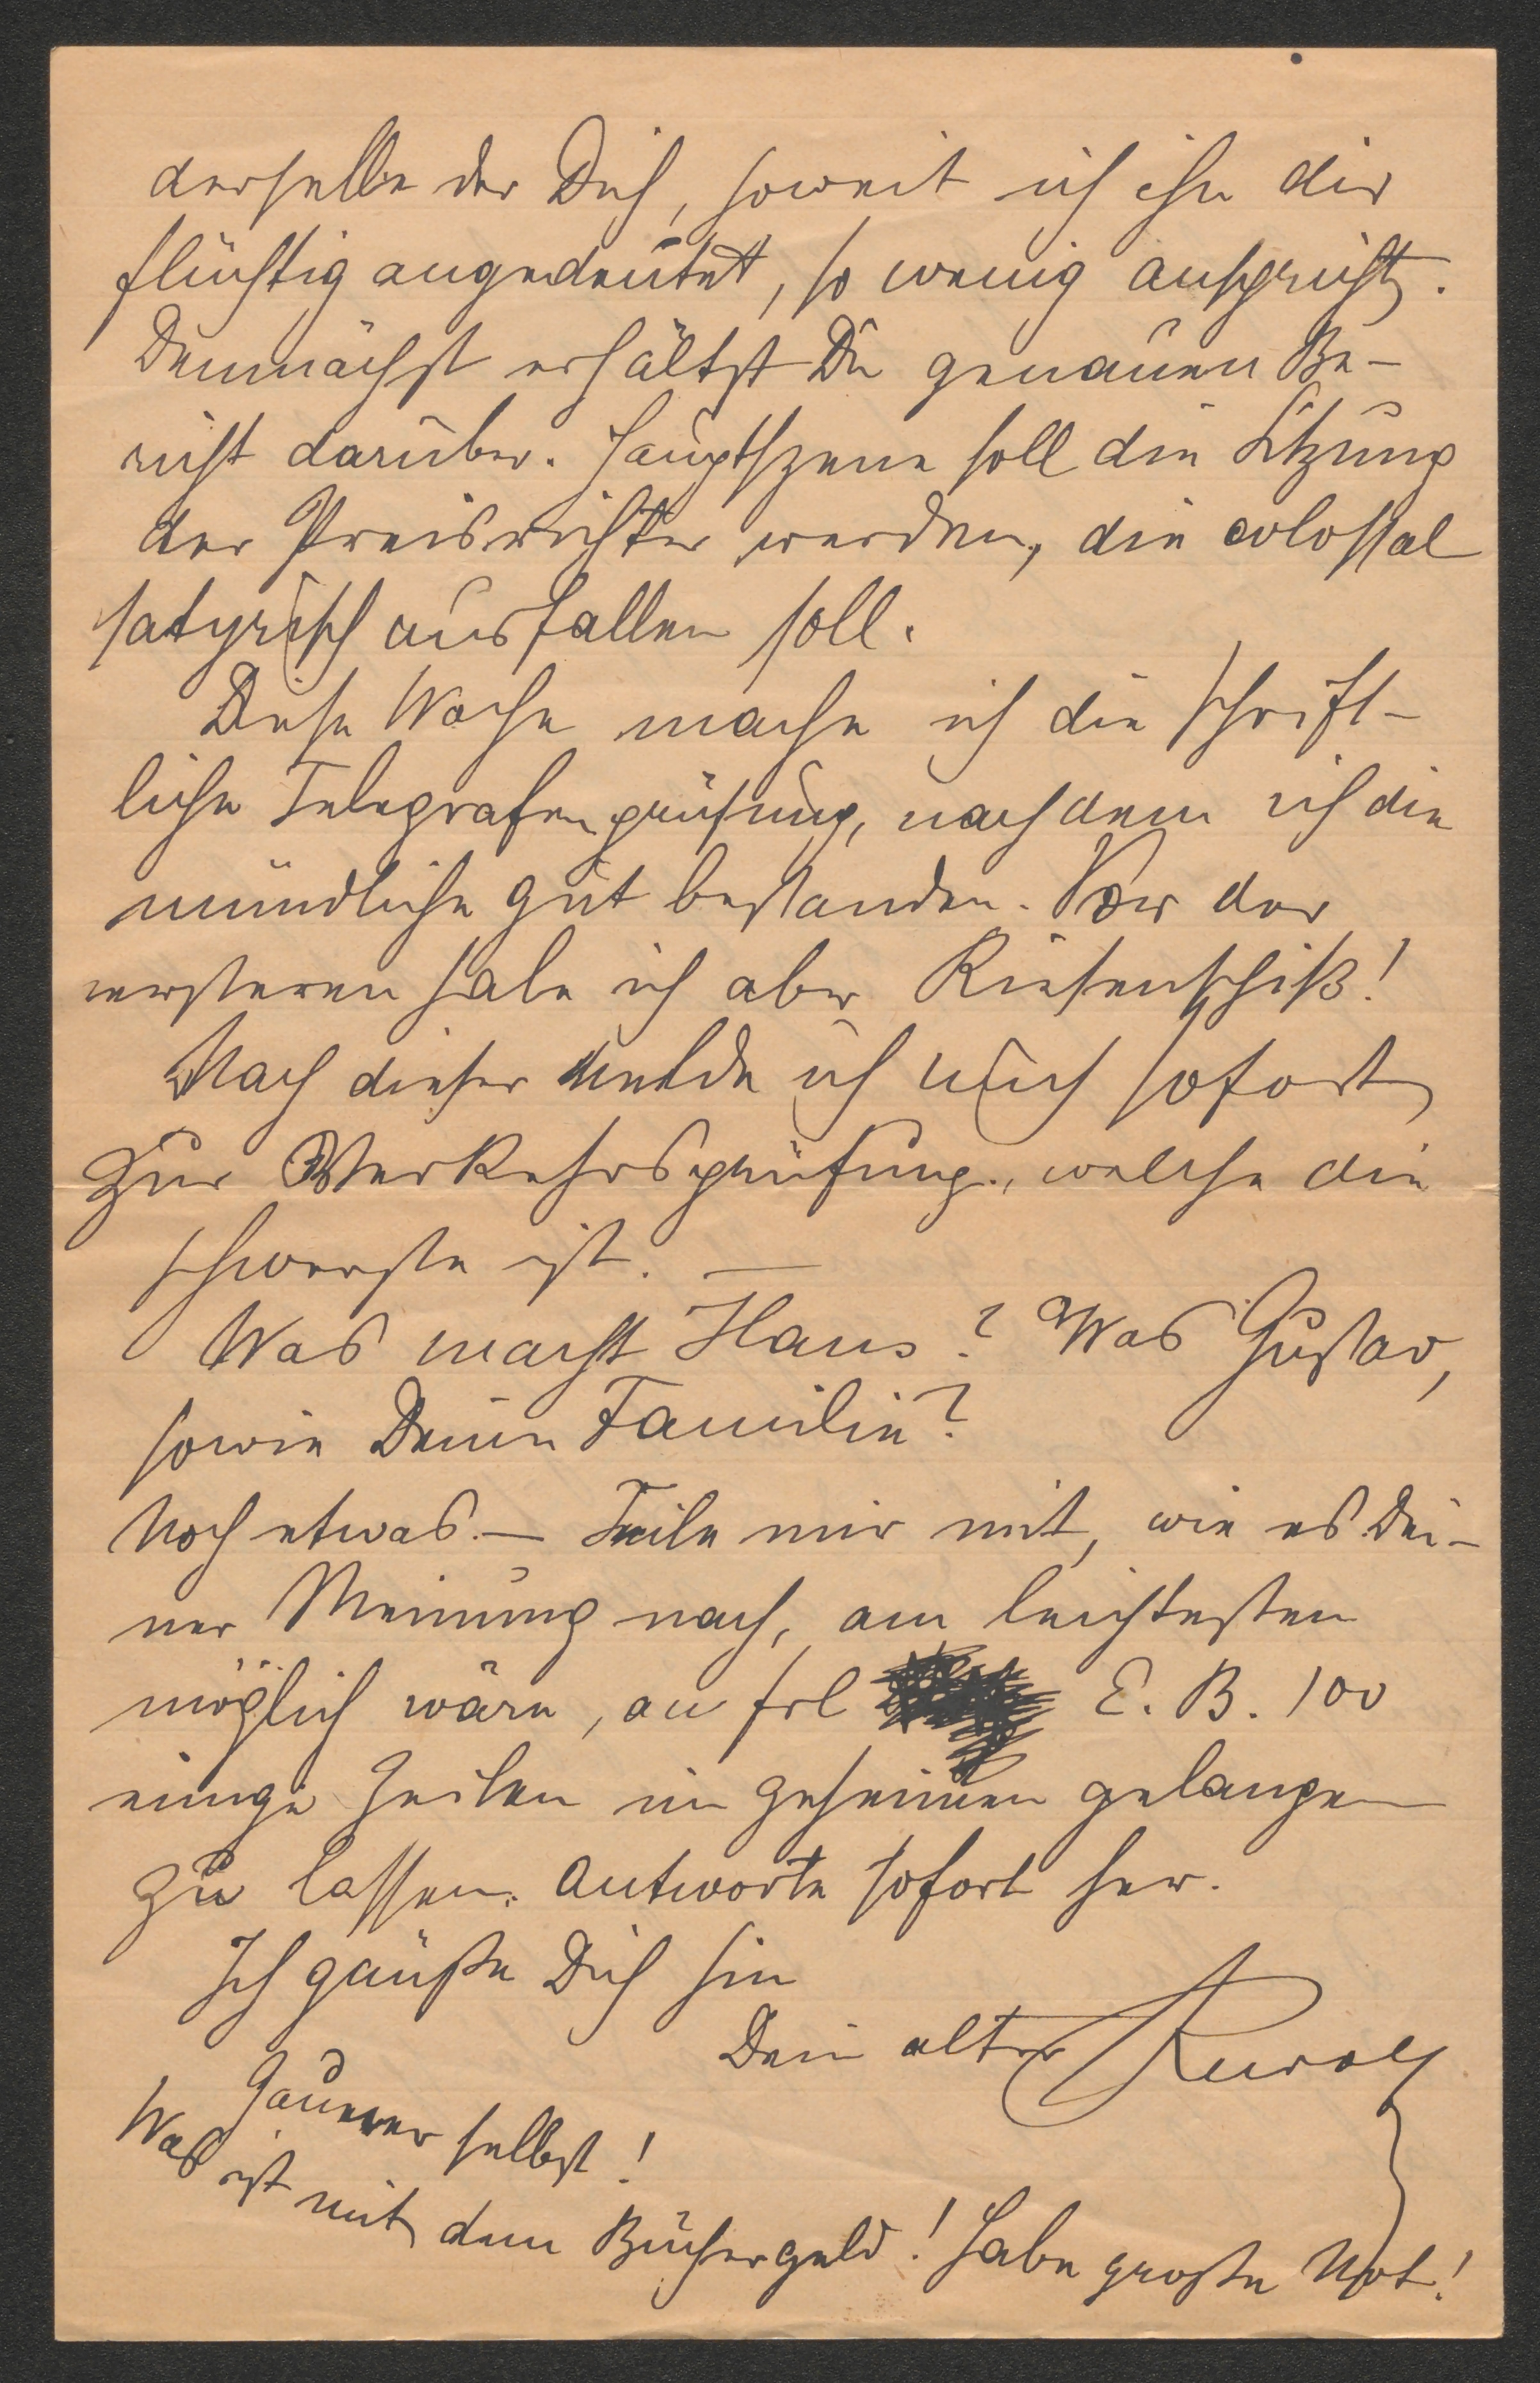 derselbe der Dich, soweit ich ihn dir
flüchtig angedeutet, so wenig anspricht.
Demnächst erhältst Du genauen Be-
richt darüber. Hauptszene soll die Sitzung
der Preisrichter werden, die colossal
satyrisch ausfallen soll.
Diese Woche mache ich die schrift-
liche Telegrafenprüfung, nachdem ich die
mündliche gut bestanden. Vor der
ersteren habe ich aber Riesenschiß!
Nach dieser melde ich mich sofort
zur Verkehrsprüfung, welche die
schwerste ist. —
Was macht Hans? Was Gustav,
sowie Deine Familie?
Noch etwas. — Teile mir mit, wie es Dei-
ner Meinung nach, am leichtesten
möglich wäre, an Frl E. B. 100
einige Zeilen im geheimen gelangen
zu lassen. Antworte sofort her.
Ich grüße Dich hin
Dein alter Rudolf
Gauner selbst!
Was ist mit dem Büchergeld! Habe große Not!